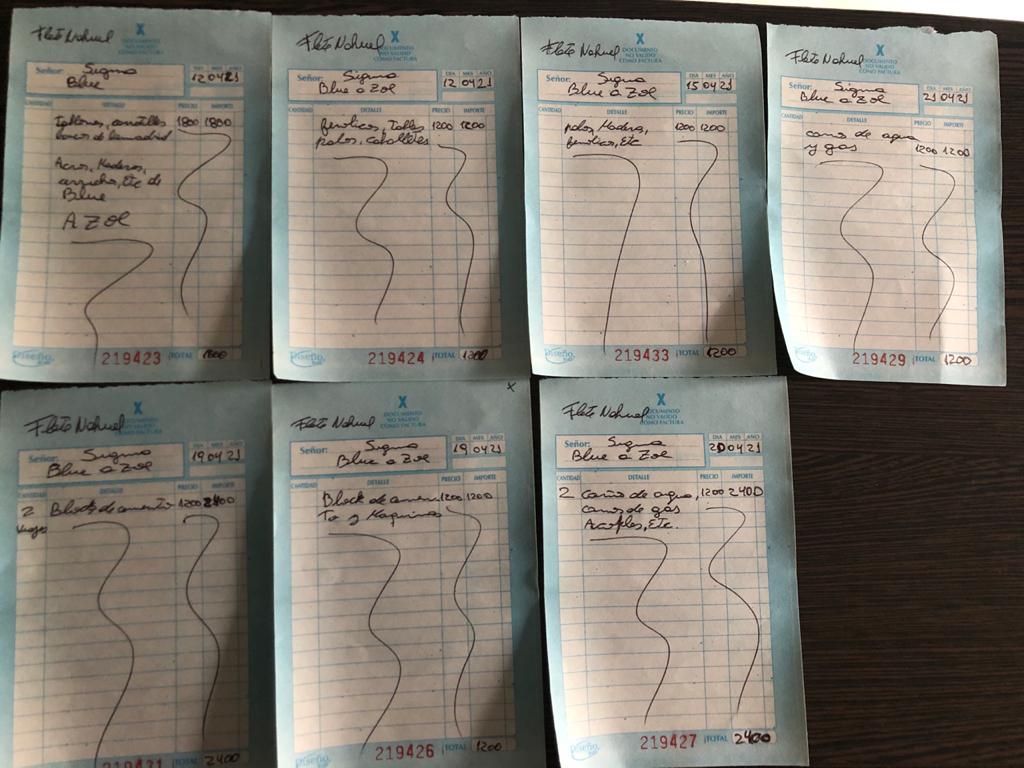 Flete Nahuel
X
DOCUMENTO
NO VALIDO
COMO FACTURA
Señor: Sigma
Blue
DIA MES AÑO
12 04 21
CANTIDAD DETALLE PRECIO IMPORTE
1800 1800
Arcos, Maderas,
Etc de
Blue
A Zol
Diseño
219423 TOTAL 1800
Flete Nahuel
X
DOCUMENTO
NO VALIDO
COMO FACTURA
Señor: Sigma
Blue a Zol
DIA MES AÑO
12 04 21
CANTIDAD DETALLE PRECIO IMPORTE
1200 1200
palos, caballetes
Diseño
219424 TOTAL 1200
Flete Nahuel
X
DOCUMENTO
NO VALIDO
COMO FACTURA
Señor: Sigma
Blue a Zol
DIA MES AÑO
15 04 21
CANTIDAD DETALLE PRECIO IMPORTE
palos, Madera, 1200 1200
Etc
Diseño
219433 TOTAL 1200
Flete Nahuel
X
DOCUMENTO
NO VALIDO
COMO FACTURA
Señor: Sigma
Blue a Zol
DIA MES AÑO
21 04 21
CANTIDAD DETALLE PRECIO IMPORTE
cano de agua
y gas 1200 1200
Diseño
219429 TOTAL 1200
Flete Nahuel
X
DOCUMENTO
NO VALIDO
COMO FACTURA
Señor: Sigma
Blue a Zol
DIA MES AÑO
19 04 21
CANTIDAD DETALLE PRECIO IMPORTE
2 Block de cemento 1200 2400
viajes
219431 TOTAL 2400
x
Flete Nahuel
X
DOCUMENTO
NO VALIDO
COMO FACTURA
Señor: Sigma
Blue a Zol
DIA MES AÑO
19 04 21
CANTIDAD DETALLE PRECIO IMPORTE
Block de cemen 1200 1200
To y Maquinas
Diseño
219426 TOTAL 1200
Flete Nahuel
X
DOCUMENTO
NO VALIDO
COMO FACTURA
Señor: Sigma
Blue a Zol
DIA MES AÑO
20 04 21
CANTIDAD DETALLE PRECIO IMPORTE
2 caño de agua, 1200 2400
canos de gas
Acoples, Etc.
Diseño
219427 TOTAL 2400